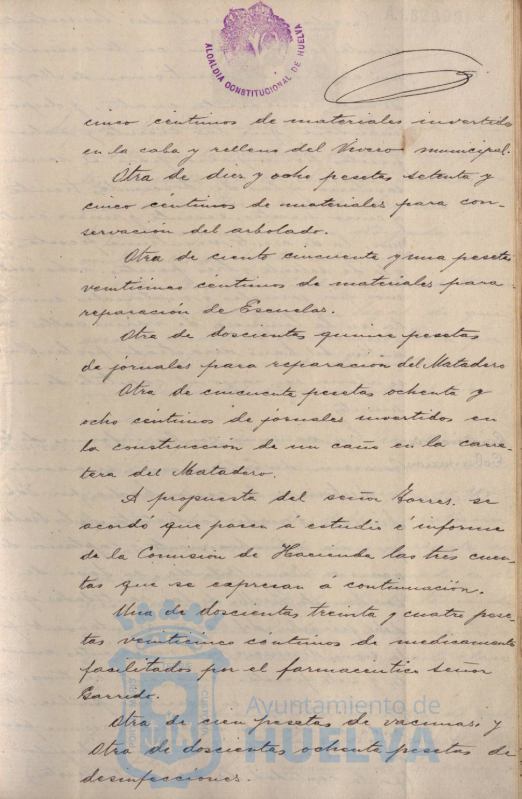 ALCALDIA CONSTITUCIONAL DE HUELVA
cinco céntimos de materiales invertido
en la caba y relleno del Vivero municipal.
Otra de diez y ocho pesetas setenta y
cinco céntimos de materiales para con-
servación del arbolado.
Otra de ciento cincuenta y una pesetas
veinticinco céntimos de materiales para
reparación de Escuelas.
Otra de doscientas quince pesetas
de jornales para reparación del Matadero
Otra de cincuenta pesetas ochenta y
ocho céntimos de jornales invertidos en
la construcción de un caño en la carre-
tera del Matadero.
A propuesta del señor Torres. se
acordó que pasen á estudio é informe
de la Comisión de Hacienda las tres cuen-
tas que se expresan á continuación.
Una de doscientas treinta y cuatro pese-
tas veinticinco céntimos de medicamentos
facilitados por el farmacéutico señor
Garrido.
Otra de cien pesetas de vacunas; y
Otra de doscientas ochenta pesetas de
desinfecciones.
Ayuntamiento de
HUELVA